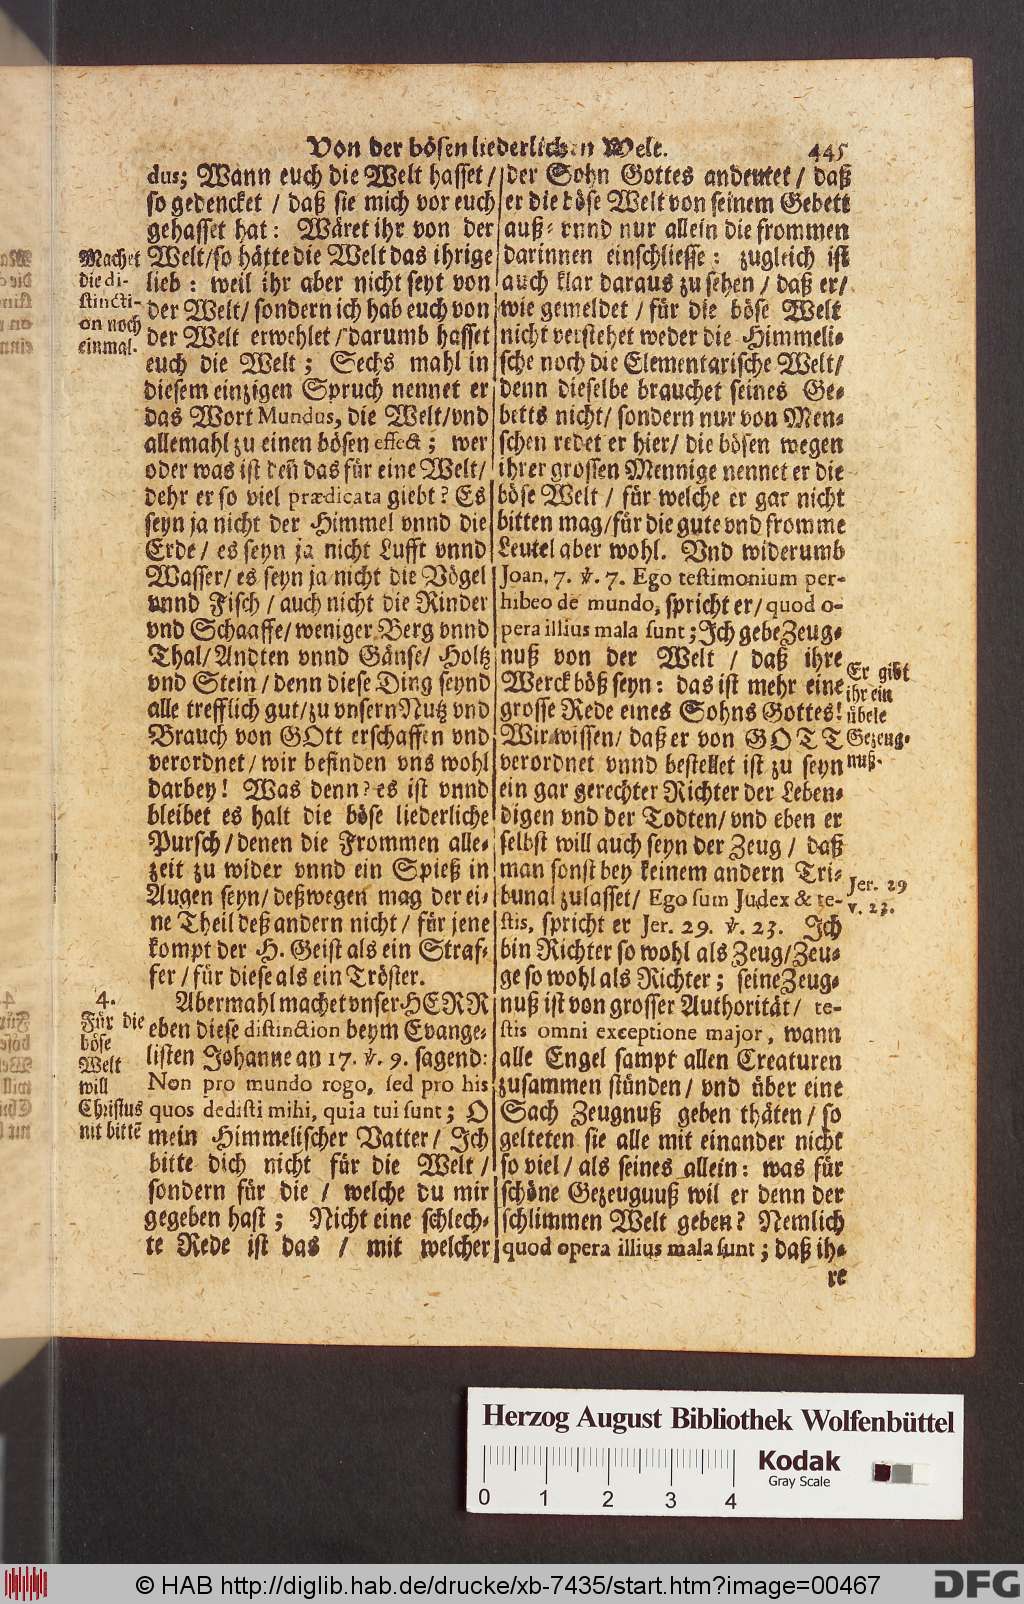 Von der bösen liederlichen Welt.
445
dus; Wann euch die Welt hasset/
so gedencket / daß sie mich vor euch
gehasset hat: Wäret ihr von der
Welt/so hätte die Welt das ihrige
lieb: weil ihr aber nicht seyt von
der Welt/ sondern ich hab euch von
der Welt erwehlet / darumb hasset
euch die Welt; Sechs mahl in
diesem einzigen Spruch nennet er
das Wort Mundus, die Welt/vnd
allemahl zu einen bösen effect; wer
oder was ist deñ das für eine Welt/
dehr er so viel prædicata giebt? Es
seyn ja nicht der Himmel vnnd die
Erde / es seyn ja nicht Lufft vnnd
Wasser/ es seyn ja nicht die Vögel
vnnd Fisch / auch nicht die Rinder
vnd Schaaffe/ weniger Berg vnnd
Thal/ Andten vnnd Gänse/ Holtz
vnd Stein / denn diese Ding seynd
alle trefflich gut/zu vnsern Nutz vnd
Brauch von GOtt erschaffen vnd
verordnet / wir befinden vns wohl
darbey! Was denn? es ist vnnd
bleibet es halt die böse liederliche
Pursch / denen die Frommen alle-
zeit zu wider vnnd ein Spieß in
Augen seyn/ deßwegen mag der ei-
ne Theil deß andern nicht / für jene
kompt der H. Geist als ein Straf-
fer / für diese als ein Tröster.
Abermahl machet vnser HERR
eben diese distinction beym Evange-
listen Johanne an 17. ℣. 9. sagend:
Non pro mundo rogo, sed pro his
quos dedisti mihi, quia tui sunt; O
mein Himmelischer Vatter/ Ich
bitte dich nicht für die Welt /
sondern für die / welche du mir
gegeben hast; Nicht eine schlech-
te Rede ist das / mit welcher
Machet
die di-
stincti-
on noch
einmal.
4.
Für die
böse
Welt
will
Christus
nit bittē
der Sohn Gottes andeutet / daß
er die böse Welt von seinem Gebett
auß- vnnd nur allein die frommen
darinnen einschliesse: zugleich ist
auch klar daraus zu sehen / daß er/
wie gemeldet / für die böse Welt
nicht verstehet weder die Himmeli-
sche noch die Elementarische Welt/
denn dieselbe brauchet seines Ge-
betts nicht/ sondern nur von Men-
schen redet er hier/ die bösen wegen
ihrer grossen Mennige nennet er die
böse Welt / für welche er gar nicht
bitten mag/für die gute vnd fromme
Leutel aber wohl. Vnd widerumb
Joan. 7. ℣. 7. Ego testimonium per-
hibeo de mundo, spricht er/ quod o-
pera illius mala sunt; Ich gebe Zeug-
nuß von der Welt / daß ihre
Werck böß seyn: das ist mehr eine
grosse Rede eines Sohns Gottes!
Wir wissen/ daß er von GOTT
verordnet vnnd bestellet ist zu seyn
ein gar gerechter Richter der Leben-
digen vnd der Todten/ vnd eben er
selbst will auch seyn der Zeug / daß
man sonst bey keinem andern Tri-
bunal zulasset/ Ego sum Judex & te-
stis, spricht er Jer. 29. ℣. 23. Ich
bin Richter so wohl als Zeug/Zeu-
ge so wohl als Richter; seine Zeug-
nuß ist von grosser Authorität/ te-
stis omni exceptione major, wann
alle Engel sampt allen Creaturen
zusammen stünden / vnd über eine
Sach Zeugnuß geben thäten / so
gelteten sie alle mit einander nicht
so viel / als seines allein: was für
schöne Gezeugnuß wil er denn der
schlimmen Welt geben? Nemlich
quod opera illius mala sunt; daß ih-
re
Er gibt
ihr ein
übele
Gezeug-
nuß.
Jer. 29
v. 23.
Herzog August Bibliothek Wolfenbüttel
Kodak
Gray Scale
0 1 2 3 4
© HAB http://diglib.hab.de/drucke/xb-7435/start.htm?image=00467
DFG